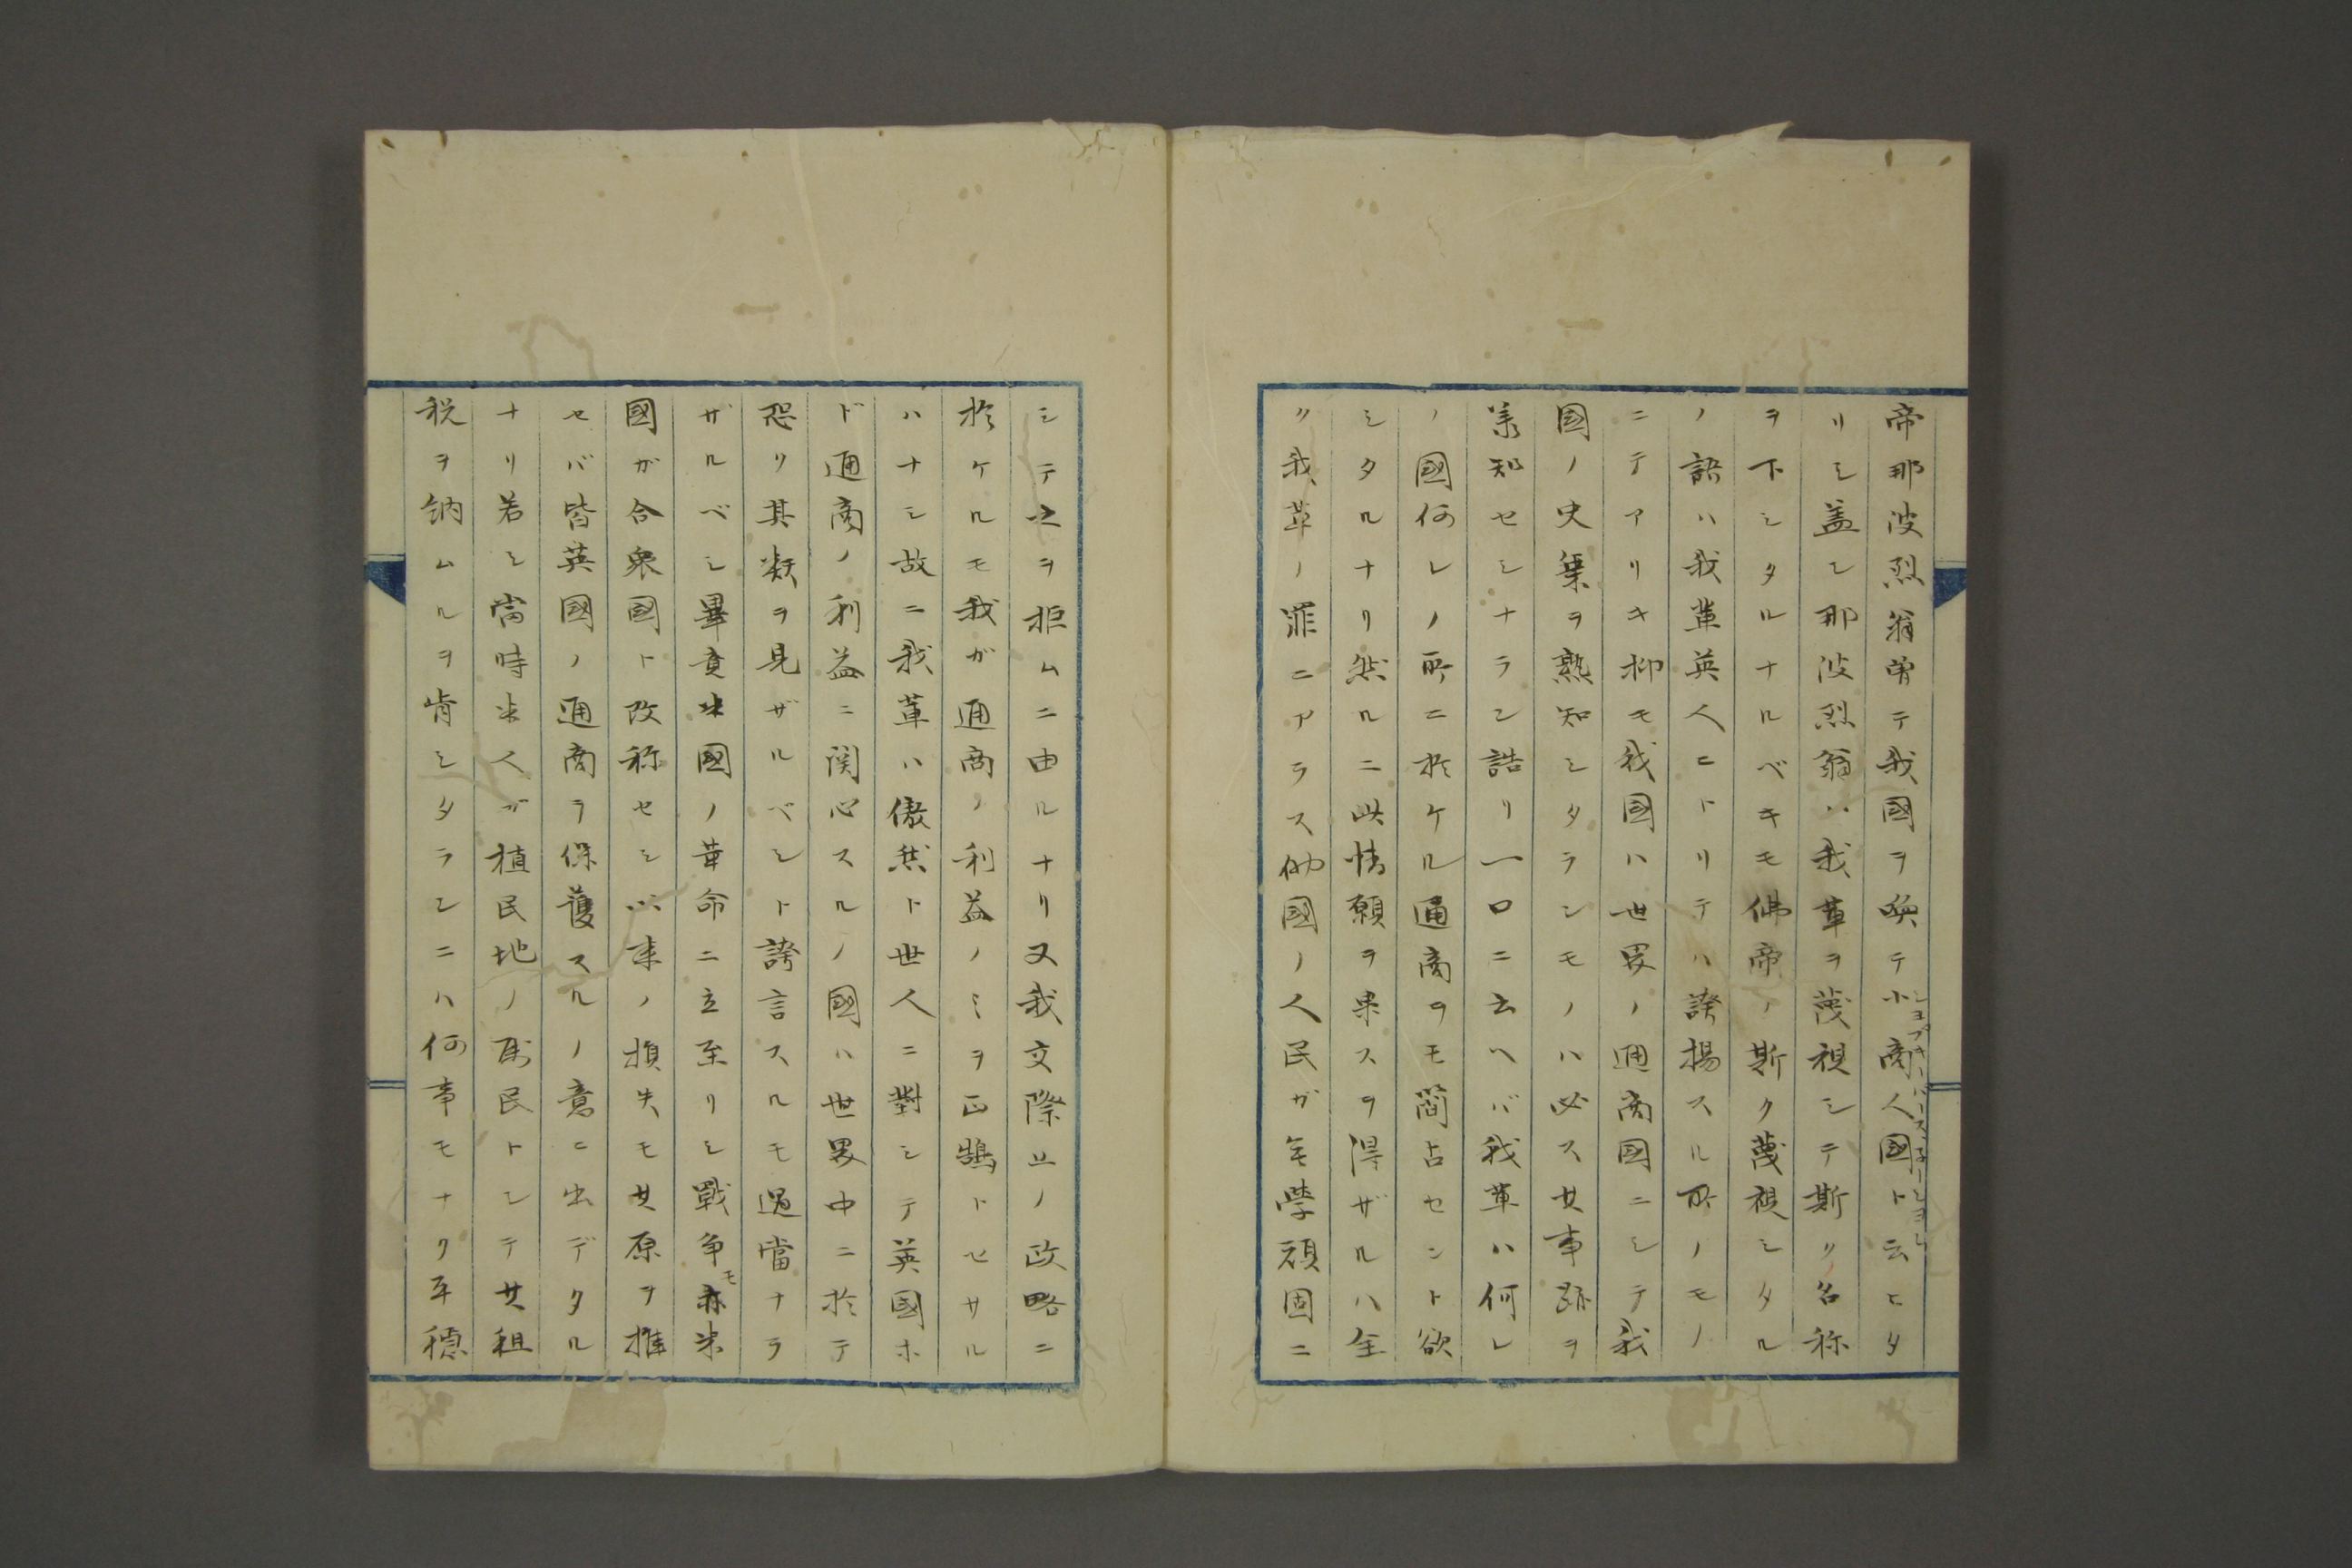 帝那波烈翁曽テ我國ヲ喚テ小商人國ト云ヒタ
リシ盖シ那波烈翁ハ我軰ヲ蔑視シテ斯ノ名称
ヲ下シタルナルベキモ佛帝ノ斯ク蔑視シタル
ノ語ハ我軰英人ニトリテハ誇揚スル所ノモノ
ニテアリキ抑モ我國ハ世界ノ通商國ニシテ我
國ノ史乗ヲ熟知シタランモノハ必ス其事跡ヲ
兼知セシナラン語リ一口ニ云ヘバ我軰ハ何レ
ノ國何レノ所ニ於ケル通商ヲモ籠占セント欲
シタルナリ然ルニ此情願ヲ果スヲ得ザルハ全
ク我軰ノ罪ニアラス他國ノ人民ガ無學頑固ニ
シテ之ヲ拒ムニ由ルナリ又我交際上ノ政略ニ
於ケルモ我ガ通商ノ利益ノミヲ正鵠トセサル
ハナシ故ニ我軰ハ傲然ト世人ニ對シテ英國ホ
ド通商ノ利益ニ関心スルノ國ハ世界中ニ於テ
恐リ其類ヲ見ザルベシト誇言スルモ過當ナラ
ザルベシ畢竟米國ノ革命ニ立至リシ戰争モ亦米
國ガ合衆國ト改称セシ以来ノ損失モ其原ヲ推
セバ皆英國ノ通商ヲ保護スルノ意ニ出デタル
ナリ若シ當時米人ガ植民地ノ属民トシテ其租
税ヲ納ムルヲ肯シタランニハ何事モナク平穏